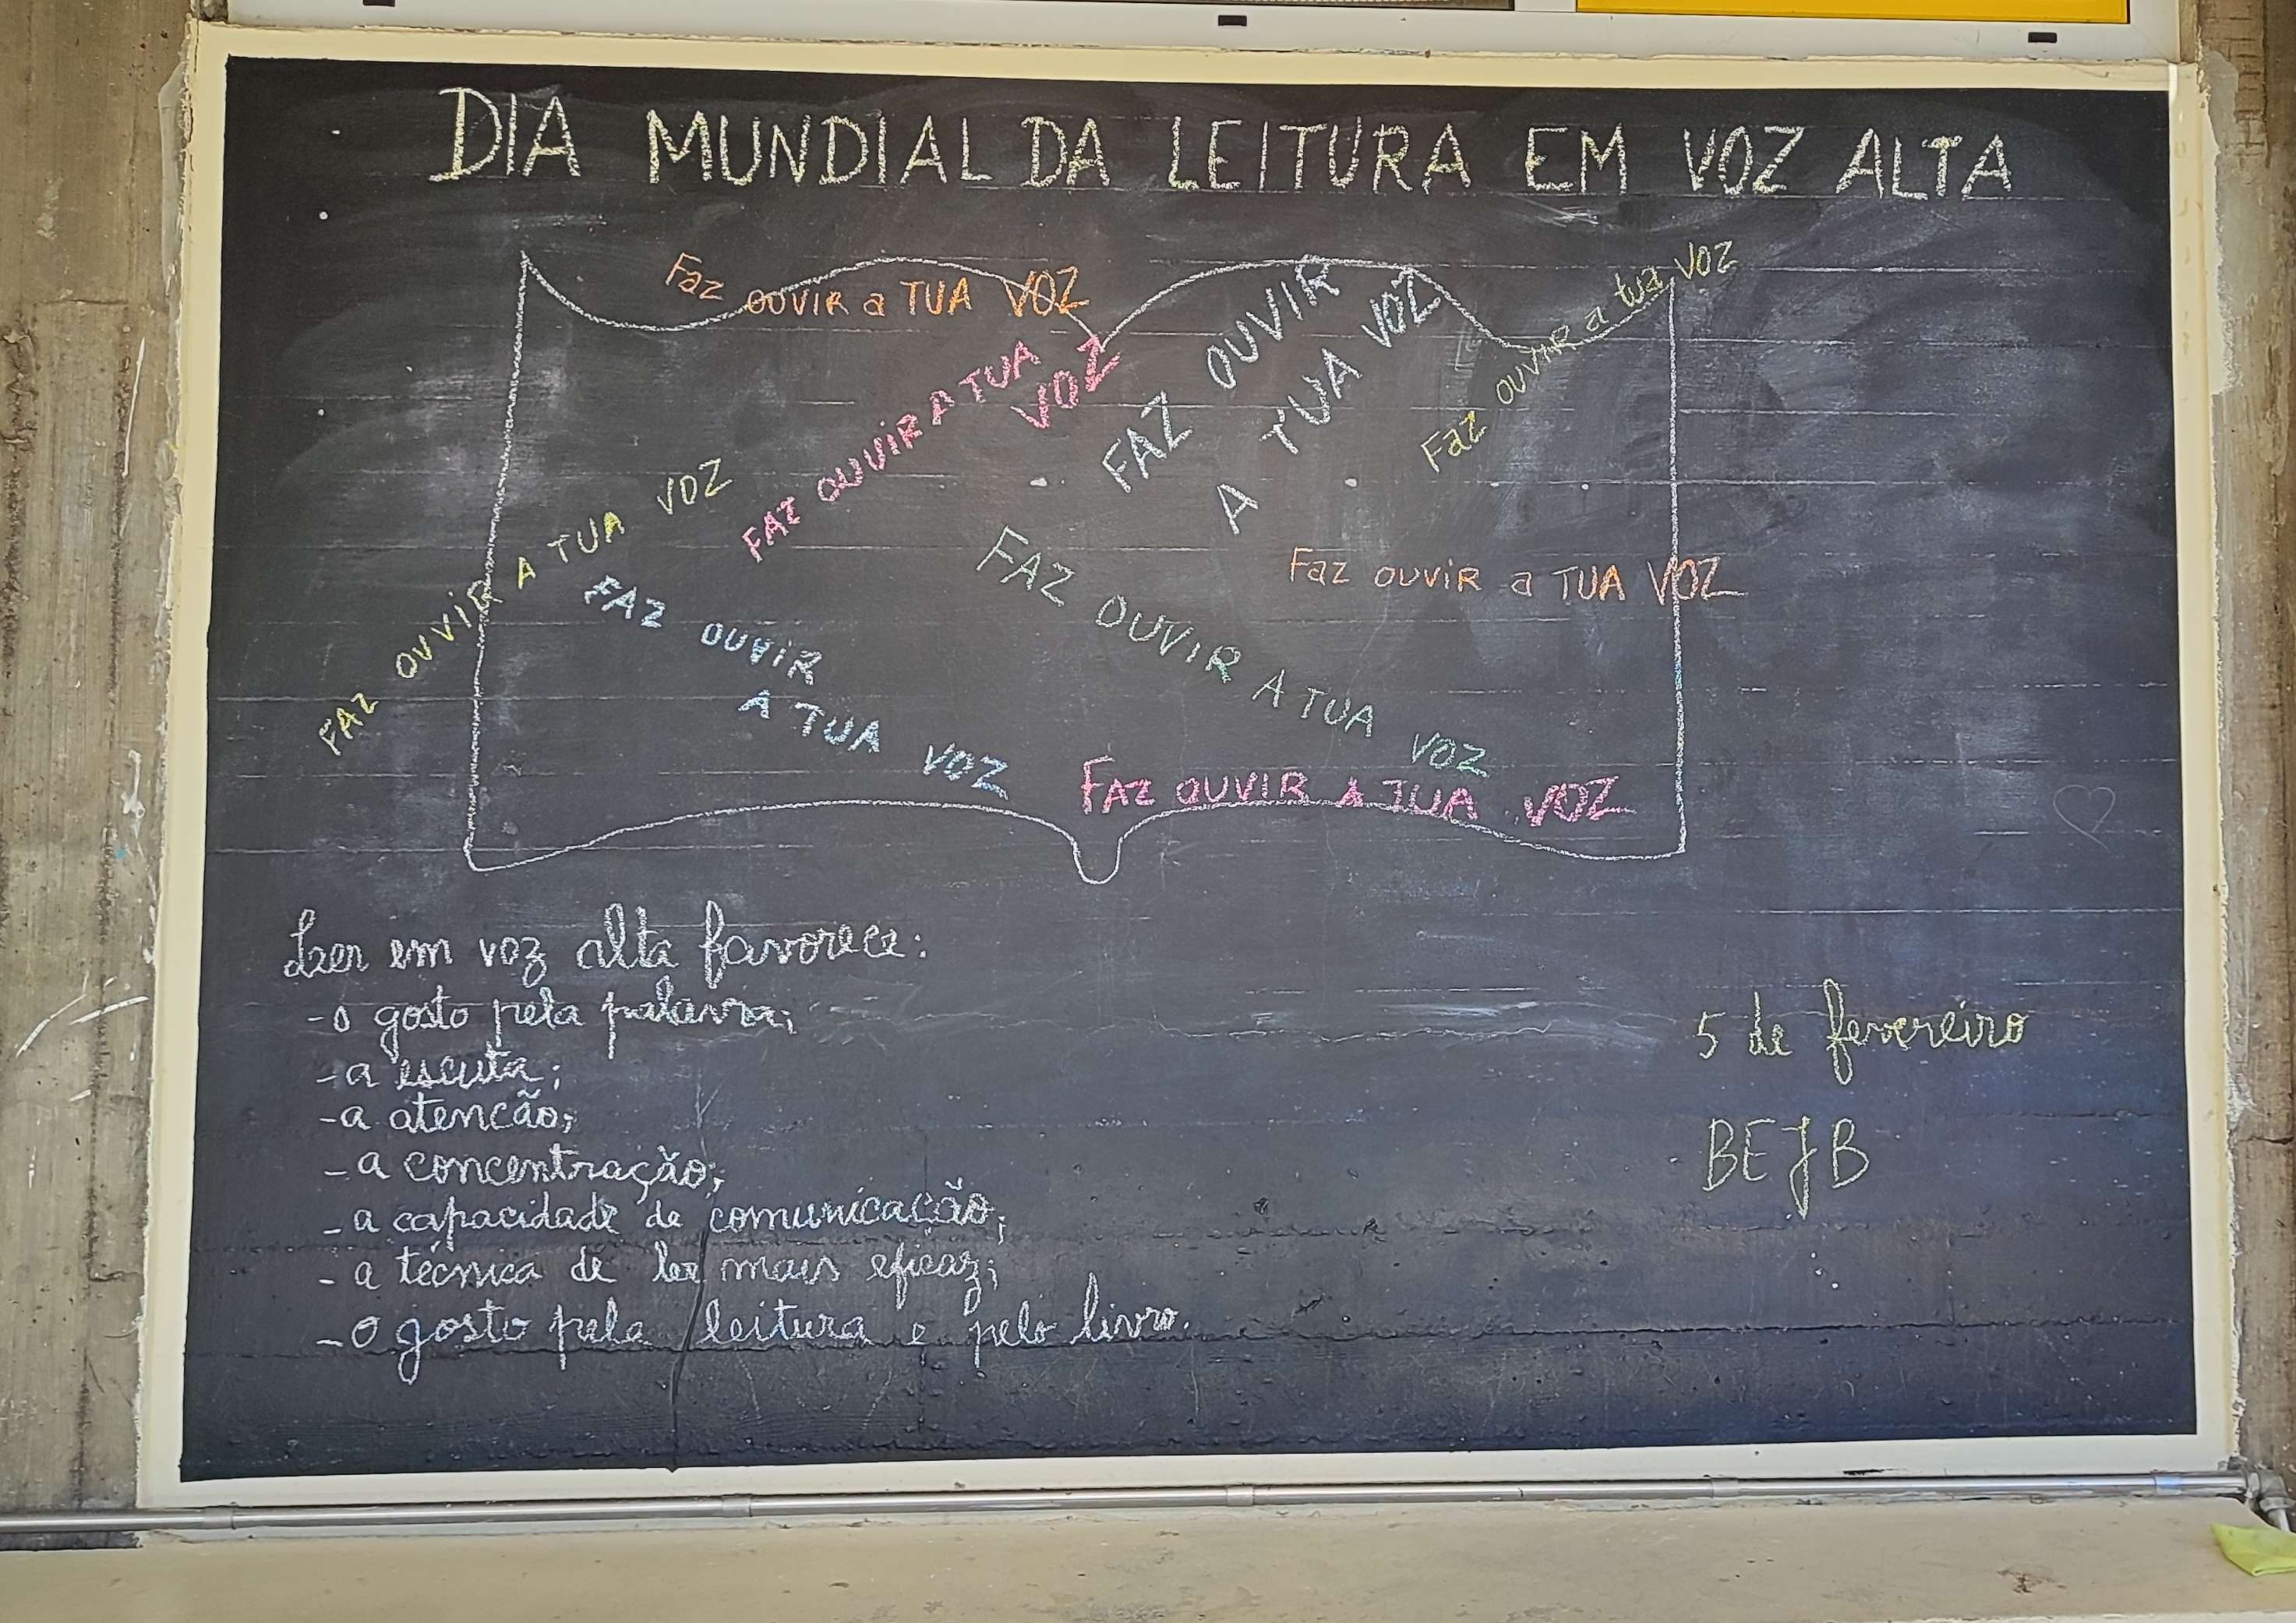 DIA MUNDIAL DA LEITURA EM VOZ ALTA
Faz OUVIR a TUA VOZ
FAZ OUVIR A TUA
VOZ
FAZ OUVIR
A TUA VOZ
Faz OUVIR a tua VOZ
FAZ OUVIR A TUA VOZ
FAZ OUVIR
A TUA VOZ
FAZ OUVIR A TUA VOZ
Faz OUVIR a TUA VOZ
FAZ OUVIR A TUA VOZ
Ler em voz alta favorece:
- o gosto pela palavra;
- a escuta;
- a atencão;
- a concentração;
- a capacidade de comunicacão;
- a técnica de ler mais eficaz;
- o gosto pela leitura e pelo livro.
5 de fevereiro
BEJB